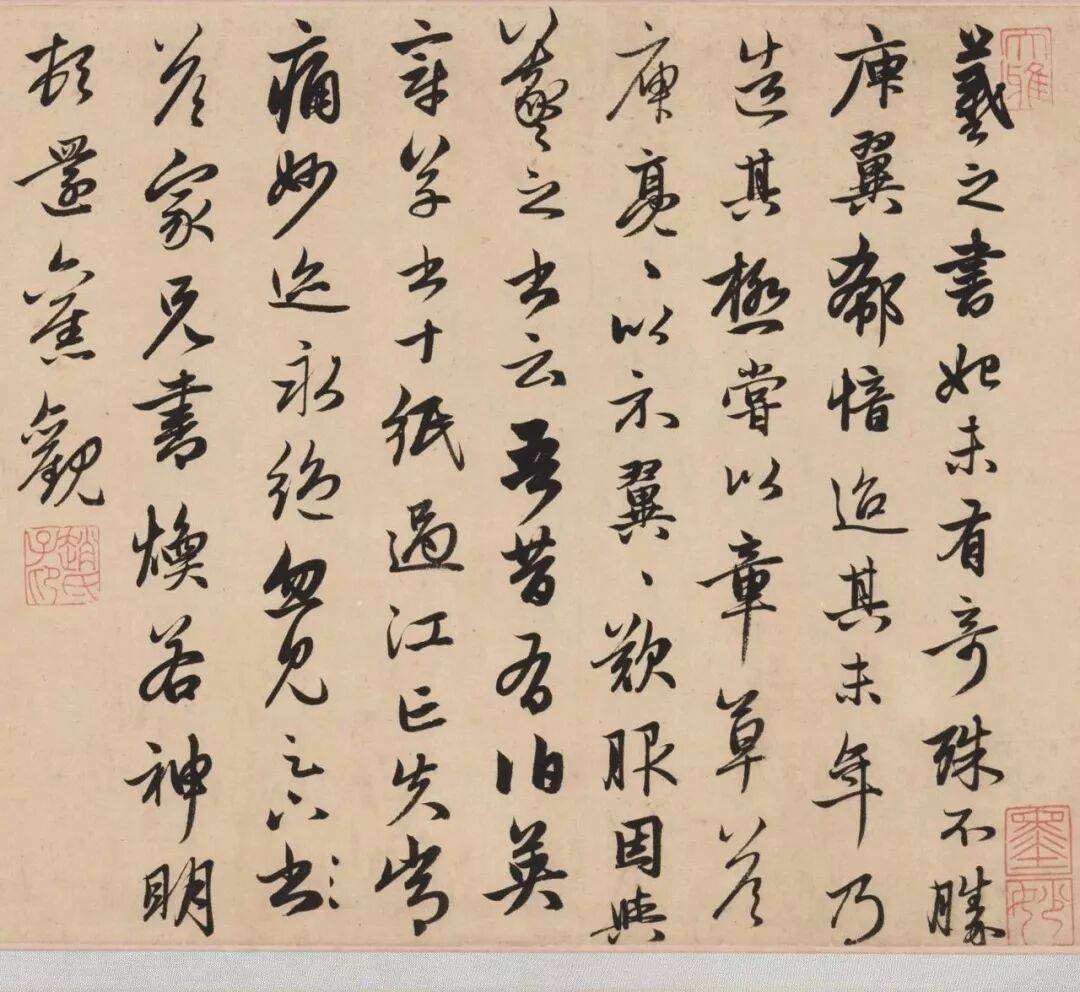 大雅
羲之書始未有奇殊不勝
庾翼郗愔迨其末年乃
造其極嘗以章草答
庾亮〻以示翼〻歎服因與
羲之書云吾昔有伯英
章草書十紙過江亡失常
痛妙迹永絕忽見足下書
答家兄書煥若神明
頓還舊觀
趙氏子昂
墨妙